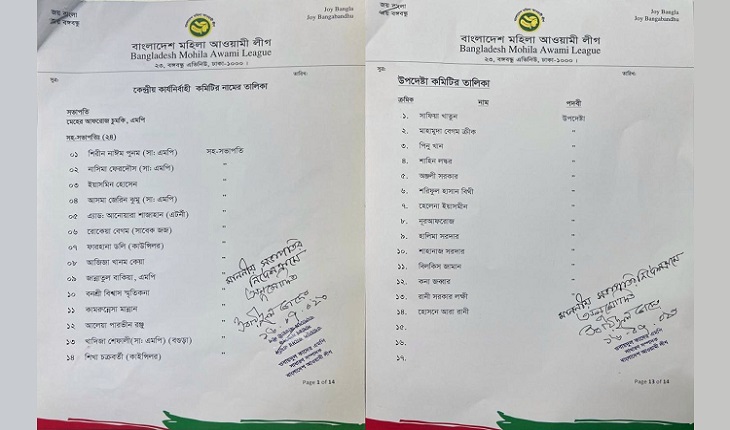 জয় বাংলা
জয় বঙ্গবন্ধু
Joy Bangla
Joy Bangabandhu
বাংলাদেশ মহিলা আওয়ামী লীগ
Bangladesh Mohila Awami League
২৩, বঙ্গবন্ধু এভিনিউ, ঢাকা-১০০০।
সূত্র:
তারিখ:
কেন্দ্রীয় কার্যনির্বাহী কমিটির নামের তালিকা
সভাপতি
মেহের আফরোজ চুমকি, এমপি
সহ-সভাপতিঃ (২৪)
০১ শিরীন নাঈম পুনম (সা: এমপি) সহ-সভাপতি
০২ নাসিমা ফেরদৌস (সা: এমপি) "
০৩ ইয়াসমিন হোসেন "
০৪ আসমা জেরিন ঝুমু (সা: এমপি) "
০৫ এ্যাড: আনোয়ারা শাহজাহান (এটর্নী) "
০৬ রোকেয়া বেগম (সাবেক জজ) "
০৭ ফারহানা ডলি (কাউন্সিলর) "
০৮ আজিজা খানম কেয়া "
০৯ জান্নাতুল বাকিয়া, এমপি "
১০ বনশ্রী বিশ্বাস স্মৃতিকনা "
১১ কামরুন্নেসা মান্নান "
১২ আলেয়া পারভীন রঞ্জু "
১৩ খাদিজা শেফালী(সা: এমপি) (বগুড়া) "
১৪ শিখা চক্রবর্তী (কাউন্সিলর) "
মাননীয় সভাপতির
নির্দেশক্রমে
অনুমোদিত
ওবায়দুল কাদের
সাধারণ সম্পাদক
বাংলাদেশ আওয়ামী লীগ
Page 1 of 14
জয় বাংলা
জয় বঙ্গবন্ধু
Joy Bangla
Joy Bangabandhu
বাংলাদেশ মহিলা আওয়ামী লীগ
Bangladesh Mohila Awami League
২৩, বঙ্গবন্ধু এভিনিউ, ঢাকা-১০০০।
সূত্র:
তারিখ:
উপদেষ্টা কমিটির তালিকা
ক্রমিক নাম পদবী
১. সাফিয়া খাতুন উপদেষ্টা
২. মাহামুদা বেগম ক্রীক "
৩. পিনু খান "
৪. শাহিন লস্কর "
৫. অঞ্জলী সরকার "
৬. শরিফুল হাসান বিথী "
৭. হেলেনা ইয়াসমীন "
৮. নূরআফরোজ "
৯. হালিমা সরদার "
১০. শাহানাজ সরদার "
১১. বিলকিস জামান "
১২. কনা জব্বার "
১৩. রানী সরকার লক্ষী "
১৪. হোসনে আরা রানী "
১৫.
১৬.
১৭.
মাননীয় সভাপতির নির্দেশক্রমে
অনুমোদিত
ওবায়দুল কাদের এমপি
সাধারণ সম্পাদক
বাংলাদেশ আওয়ামী লীগ
Page 13 of 14